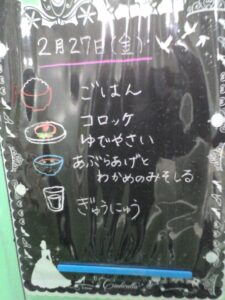 2月27日(金)
ごはん
コロッケ
ゆでやさい
あぶらあげと
わかめのみそしる
ぎゅうにゅう
Cinderella